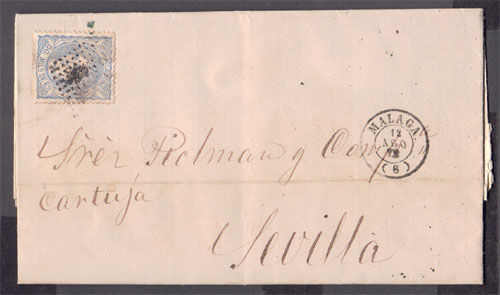 MALAGA
12
AGO
(6)
Srēr Pidman y Comp
Cartuja
Sevilla